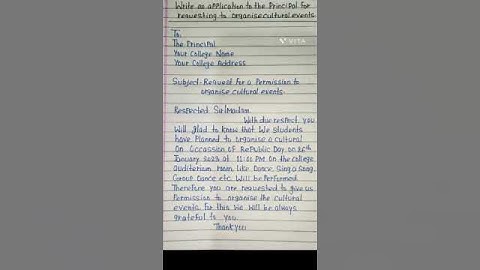 Write an application to the Principal for
requesting to organise cultural events
To,
The Principal
Your College Name
Your College Address
Subject:-Request for a Permission to
organise cultural events.
Respected Sir/Madam
With due respect you
Will glad to know that We students
have Planned to organise a cultural
On Occassion of Republic Day on 26th
January 2023 at 11:00 PM On the college
auditorium Many Like Dance, Sing a Song,
Group Dance etc. Will be Performed.
Therefore you are requested to give us
Permission to organise the cultural
events. for this We Will be always
grateful to you.
Thankyou